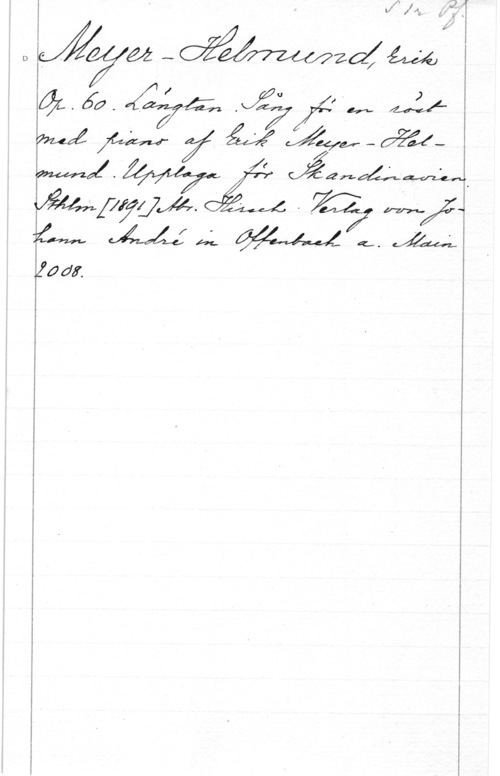 S 1 r Pf.
Meyer-Helmund, Erik
Op. 60. Längtan. Sång för en röst
med piano af Erik Meyer-Hel-
mund. Upplaga för Skandinavien.
Sthlm [1891] Abr. Hirsch. Verlag von Jo-
hann André in Offenbach a. Main
2008.